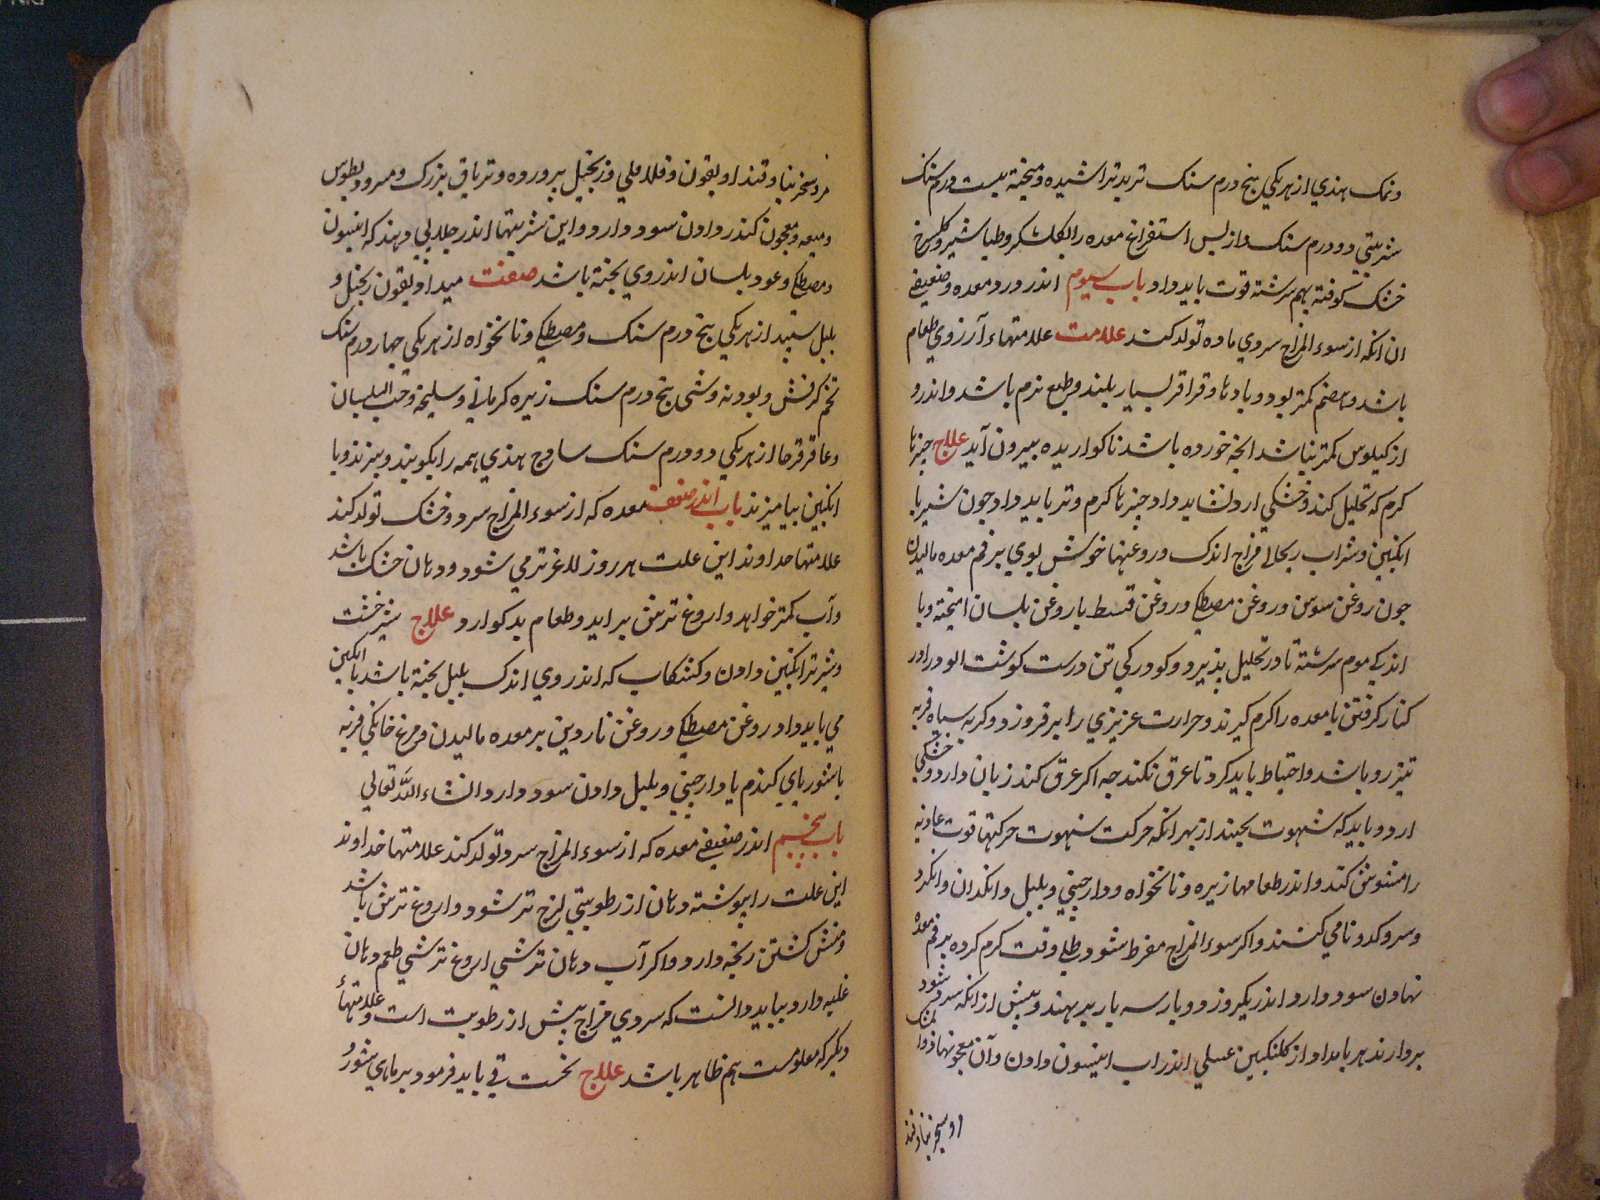 ونمک هندي از هريکي پنج درم سنک تربد تراشيده وبيخته بيست درم سنک
شربتي دو درم سنک واز پس استفراغ معده را بکلشکر وطباشير وکلسرخ
خشک کوفته بهم سرشته قوت بايد داد باب سيوم اندر درد معده وضعيفي
ان انکه از سوء المزاج سردي ماده تولد کند علامت علامتهاء آرزوي طعام
باشد وهضم کمتر بود وبادها وقراقر بسيار بلند وطبع نرم باشد واندرو
از کيلوس کمتر نباشد انچه خورده باشد ناکواريده بيرون آيد علاج چيزها
کرم که تحليل کند وخشکي ارد نشايد داد چيزها کرم وتر بايد داد جون شير با
انکبين وشراب ريحاني مزاج اندک وروغنها خوش بوي بر فم معده ماليدن
جون روغن سوسن وروغن مصطکي وروغن قسط با روغن بلسان اميخته وبا
اندکي موم سرشته تا دير تحليل پذيرد وکودکي تن درست کوشت الود را در
کنار کرفتن تا معده را کرم کيرند وحرارت عزيزي را بر فروزد وکربه سياه فربه
تيز رو باشد واحتياط بايد کرد تا عرق نکند جه اکر عرق کند زيان دارد وخشکي
ارد وبايد که شهوت بجنبد از بهر انکه حرکت شهوت حرکتها قوت عاديه
را مشوش کند واندر طعامها زيره ونانخواه ودارجيني وبلبل وانکدان وانکرد
وسرو کدونا مي کنند واکر سوء المزاج مفرط شود طلي وقت کرم کرده بر فم معده
نهادن سود دارد اندر يکروز دو بار سه بار بر نهند وپيش از انکه سرد شود
بردارند هر بامداد از کلنکبين عسلي اندر اب انيسون دادن وآن معجونها دواء المسک
ودسجرنيا وقند
مرو سجرنيا وقنداديقون وفلافلي وزنجبيل پرورده وترياق بزرک ومسروديطوس
وميعه ومعجون کندر دادن سود دارد واين شربتها اندر جلابي دهند که انيسون
ومصطکي وعود بلسان اندروي پخته باشد صفت ميداديقون زنجبل و
بلبل سپيد از هريکي پنج درم سنک ومصطکي ونانخواه از هريکي جهار درم سنک
تخم کرفش وپودنه وشمي پنج درم سنک زيره کرماني وسليخه وحب البلسان
وعاقرقرحا از هريکي دو درم سنک ساذج هندي همه را بکوبند وبيزند وبا
انکبين بياميزند باب اندر ضعف معده که از سوء المزاج سرد وخشک تولد کند
علامتها خداوند اين علت هر روز لاغرتر مي شود ودهان خشک باشد
وآب کمتر خواهد واروغ ترش بر ايد وطعام بد کوارد علاج شير خشت
وشير تر انکبين دادن وکشکاب که اندروي اندک بلبل پخته باشد با انکبين
مي بايد داد روغن مصطکي وروغن ناردين بر معده ماليدن ومرغ خانکي فربه
با شورباي کندم يا دارجيني وبلبل دادن سود دارد انشاء الله تعالي
باب پنجم اندر ضعيفي معده که از سوء المزاج سرد تولد کند علامتها خداوند
اين علت را پيوشته دهان از رطوبتي لزج تر شود واروغ ترش باشد
ومنش کشتن رنجه دارد واکر آب دهان ترشي اروغ ترشي طعم دهان
غلبه دارد ببايد دانست که سردي مزاج بيش از رطوبت است وعلامتهاء
ديکر که معلومست هم ظاهر باشد علاج نخست قي بايد فرمود برماهي شور